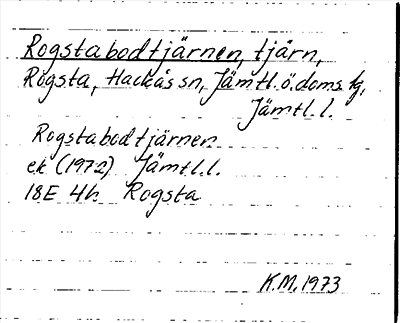 Rogstabodtjärnen, tjärn,
Rogsta, Hackås sn, Jämtl.ö.doms.fg,
Jämtl.l.
Rogstabodtjärnen
ek (1972) Jämtl.l.
18E 4h Rogsta
K.M. 1973